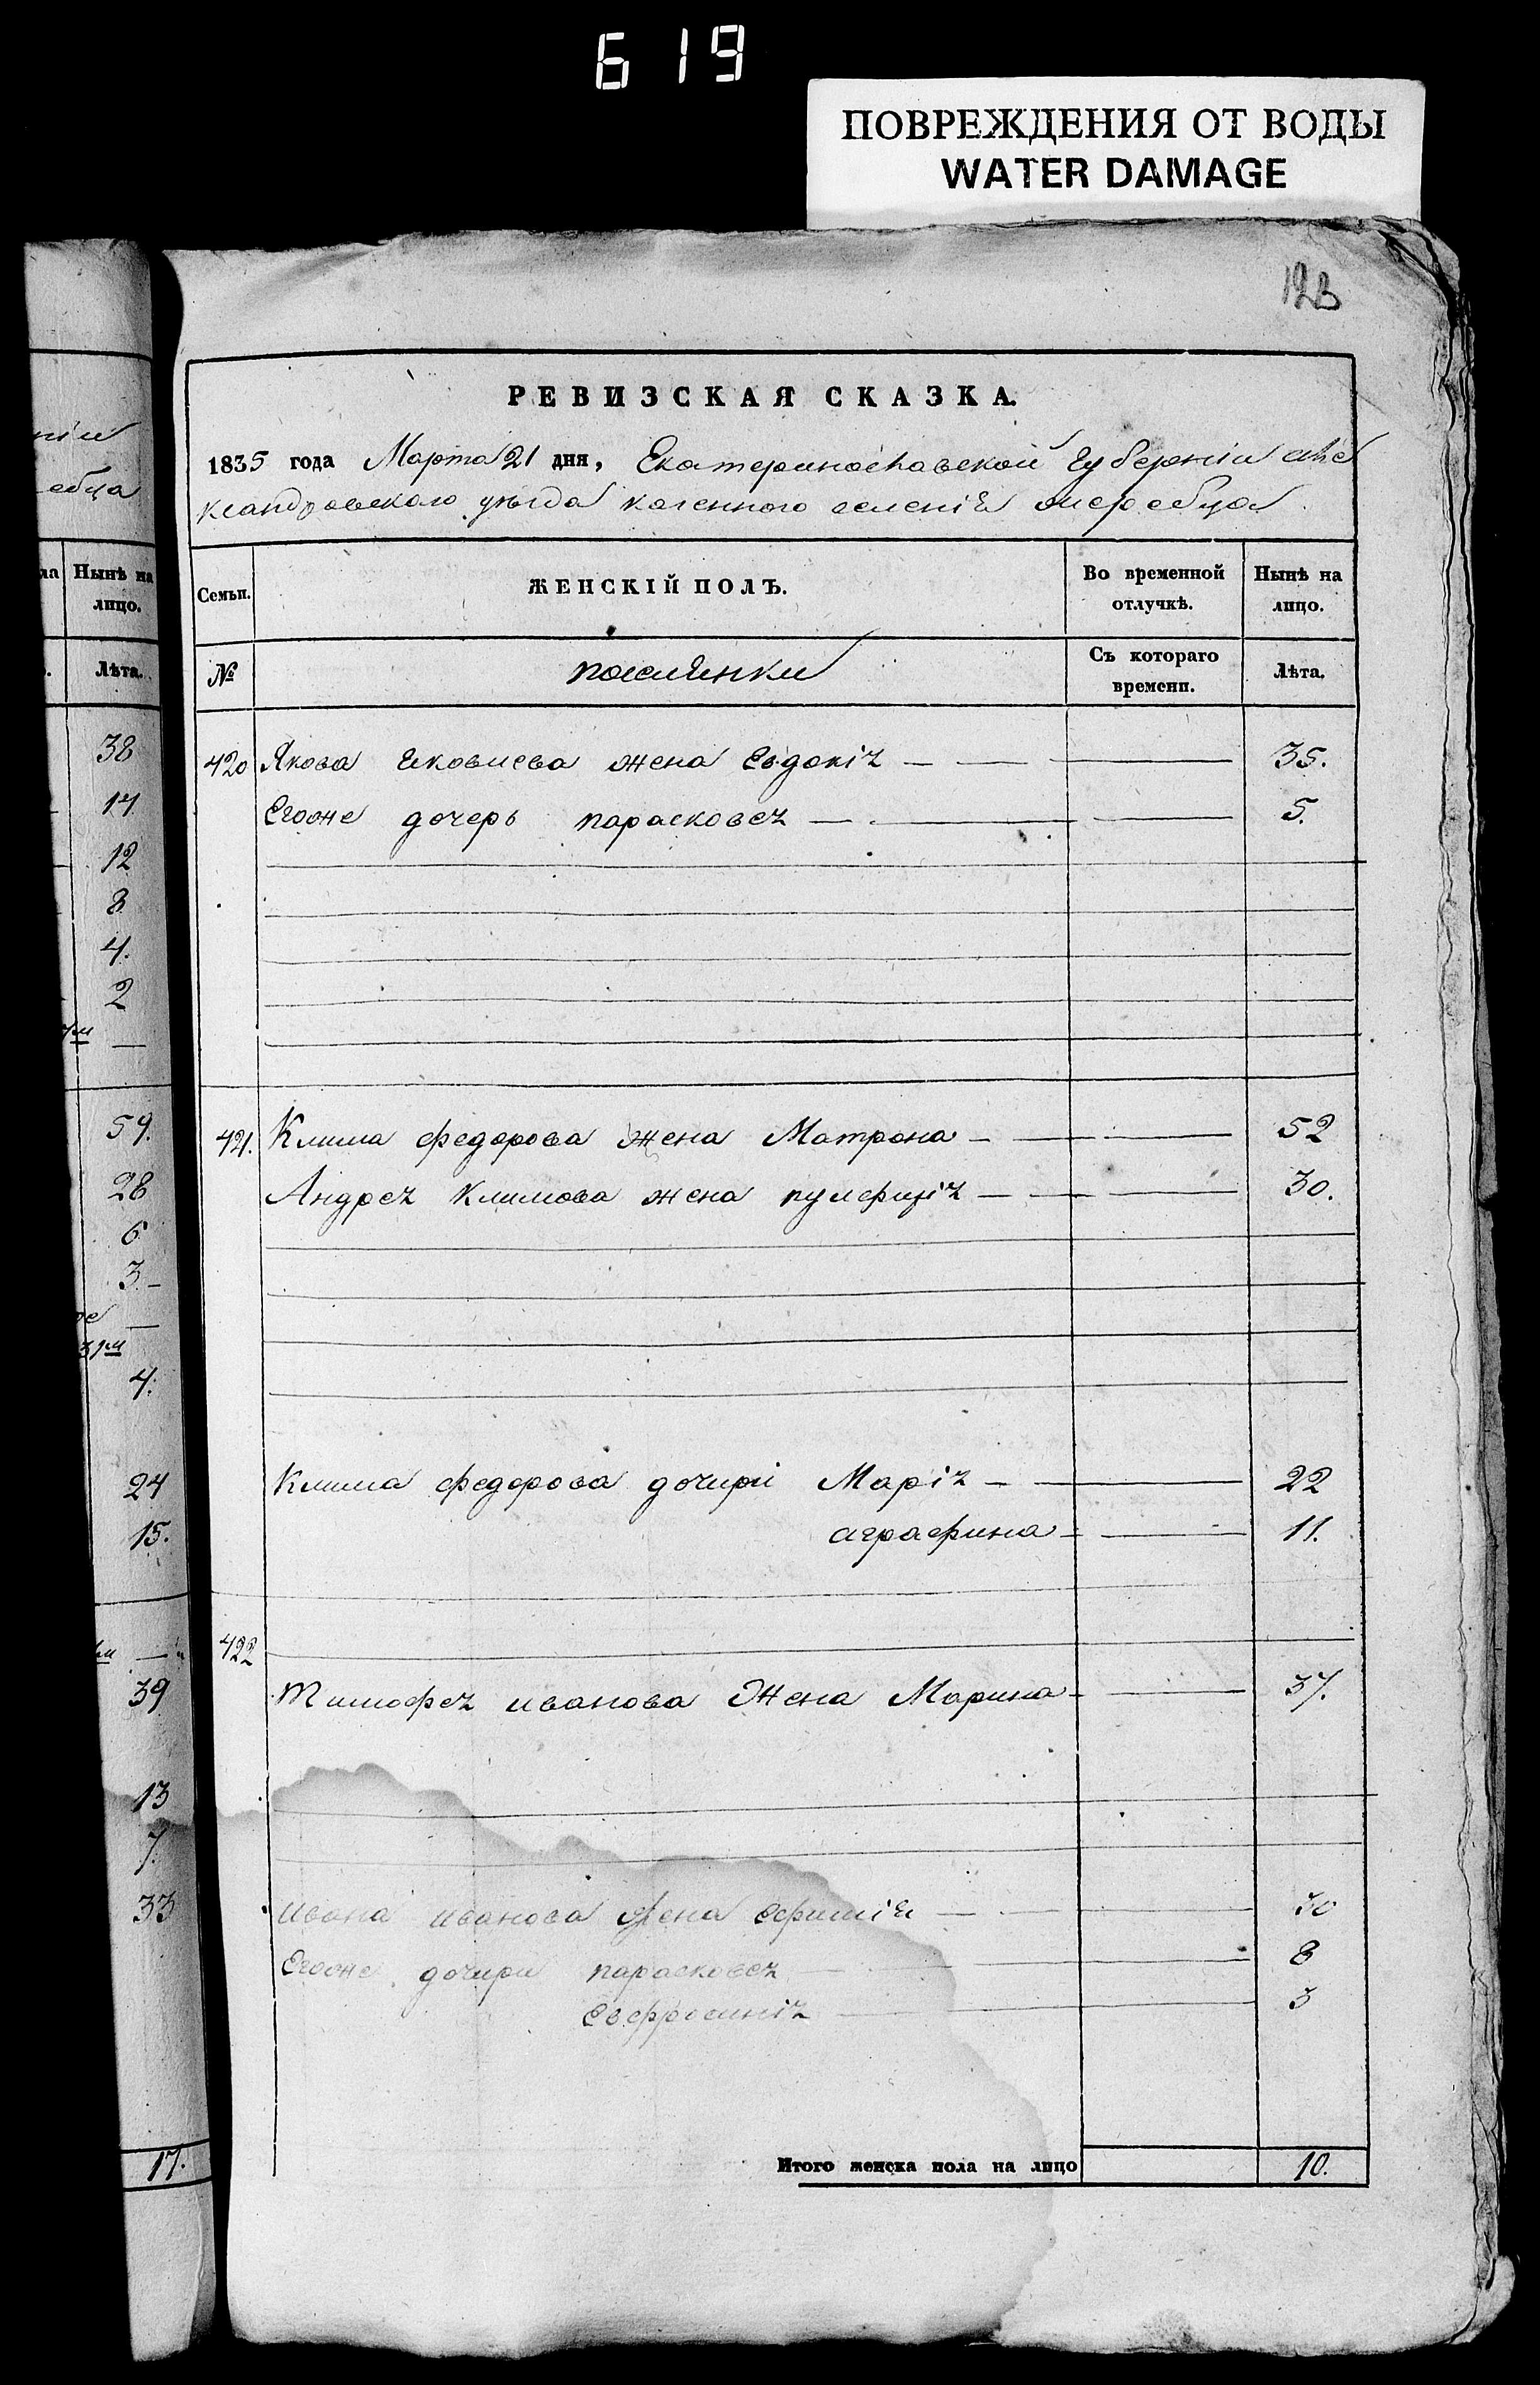 619
ПОВРЕЖДЕНИЯ ОТ ВОДЫ
WATER DAMAGE
123
РЕВИЗСКАЯ СКАЗКА.
1835 года Марта 21 дня, Екатеринославской Губернiи але
ксандровского уѣзда казенного селенiя жеребца
Семьи.
ЖЕНСКІЙ ПОЛЪ.
Во временной отлучкѣ.
Нынѣ на лицо.
№
поселянки
Съ котораго времени.
Лѣта.
420 Якова яковлева жена Евдокiя 35.
Егоже дочерь парасковея 5.
421. Клима федорова жена Матрона 52
Андрея климова жена пулферiя 30.
Клима федорова дочери Марiя 22
аграфина 11.
422
Тимофея иванова жена Марина 37.
ивана иванова жена Ефимiя 30
Егоже дочери парасковея 8
Евфросинiя 3
Итого женска пола на лицо 10.
нiи
ебца
ла
Нынѣ на лицо.
Лѣта.
38
17
12
8
4.
2
59.
28
6
3
4.
24
15.
39
13
7.
33
17.